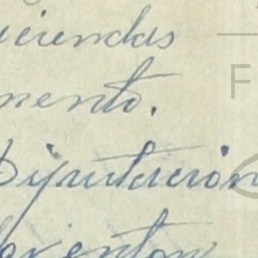 uciendas
mento.
Diputación
F